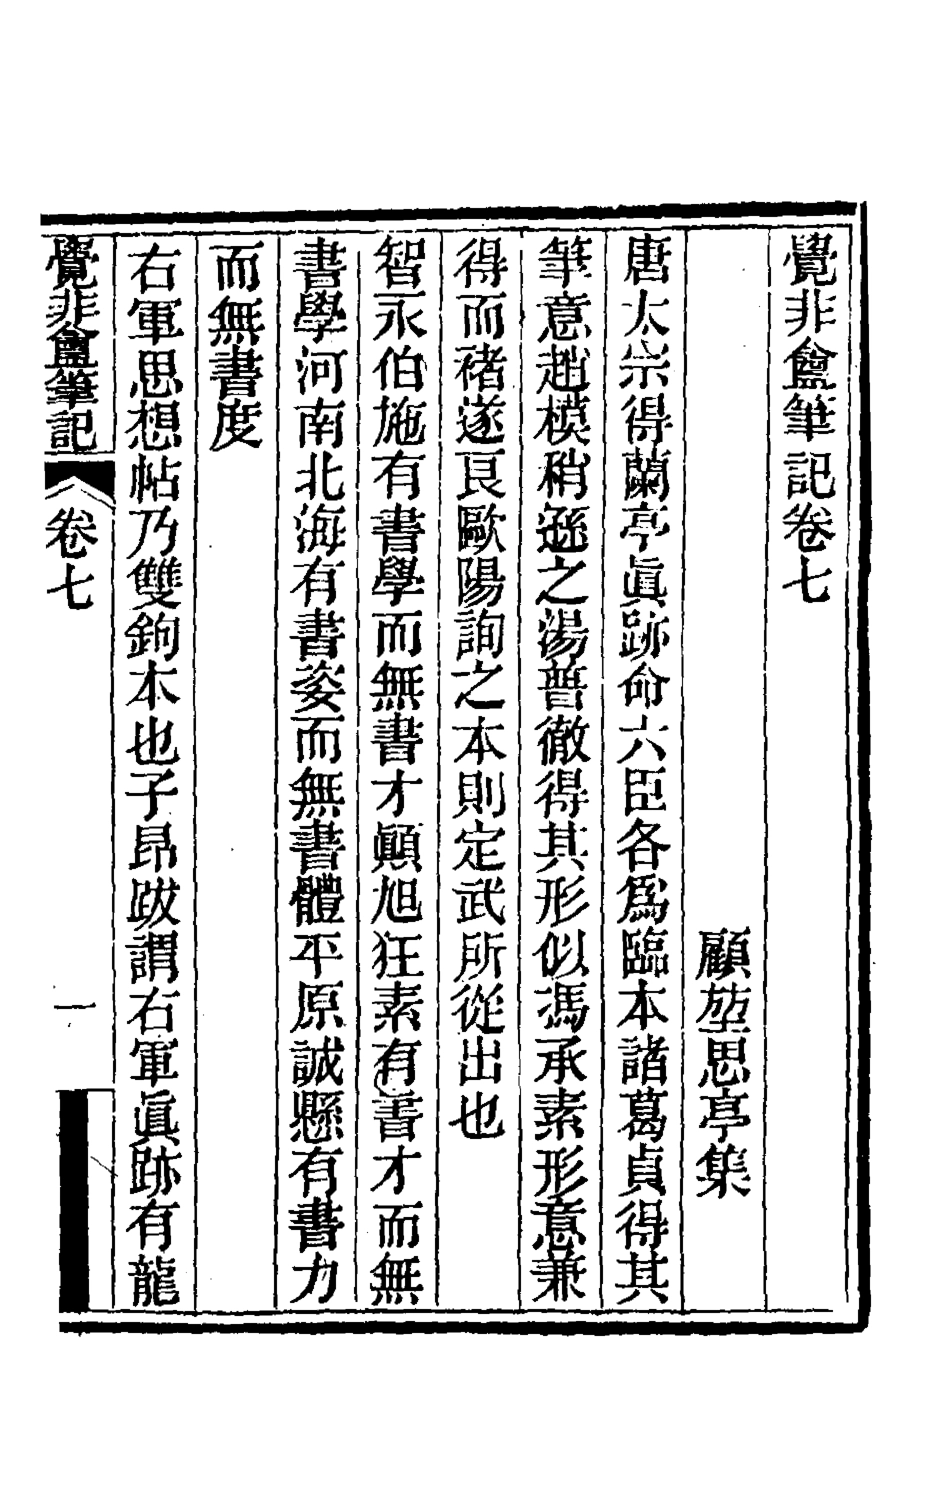 覺非盦筆記卷七
顧堃思亭集
唐太宗得蘭亭眞跡命六臣各爲臨本諸葛貞得其
筆意趙模稍遜之湯普徹得其形似馮承素形意兼
得而褚遂良歐陽詢之本則定武所從出也
智永伯施有書學而無書才顚旭狂素有書才而無
書學河南北海有書姿而無書體平原誠懸有書力
而無書度
右軍思想帖乃雙鉤本也子昂跋謂右軍眞跡有龍
覺非盦筆記
卷七
一